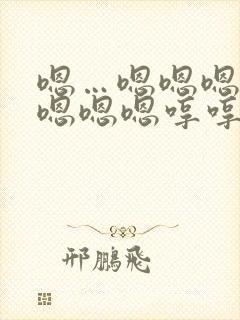 嗯…嗯嗯嗯
嗯嗯嗯哼哼
邢鹏飞